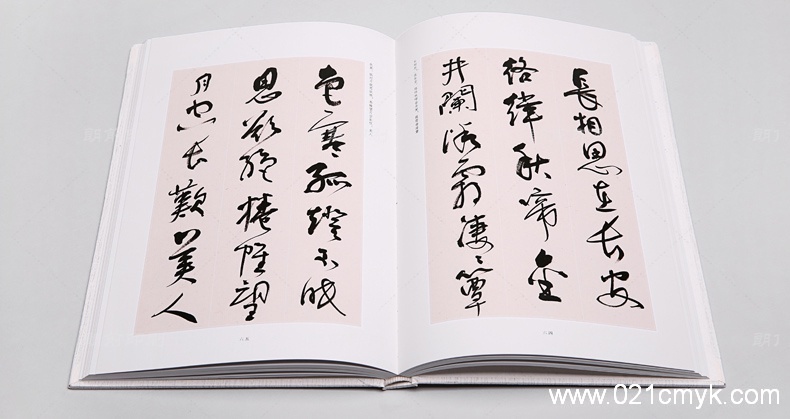 長相思在长安
絡緯秋啼金
井闌微霜淒〻簟
色寒孤燈不眠
思欲絕捲帷望
月空长歎美人
六四
六五
www.021cmyk.com